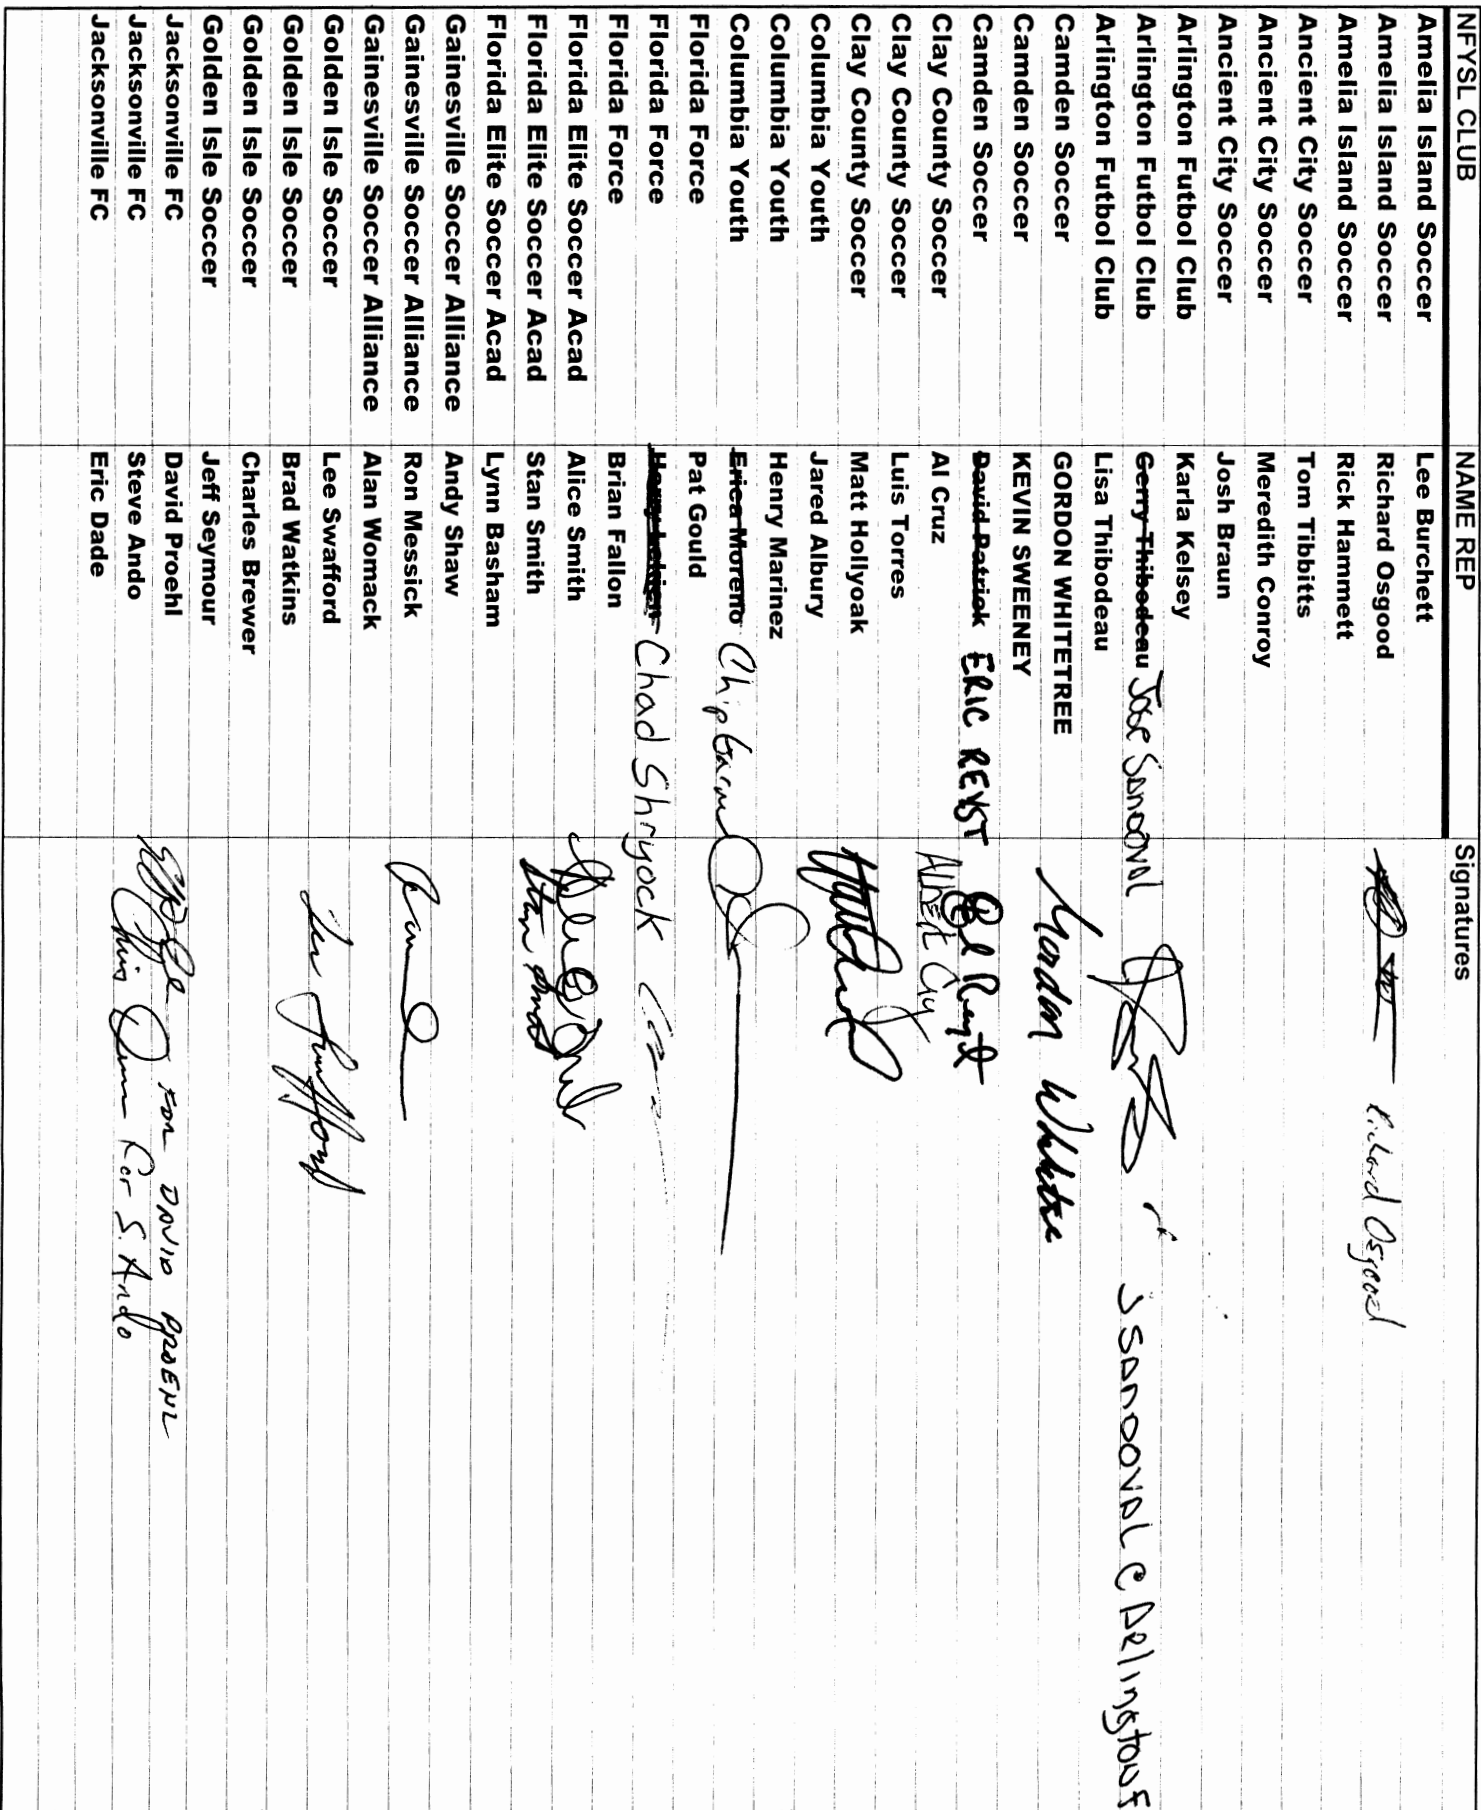 NFYSL CLUB NAME REP Signatures
Amelia Island Soccer Lee Burchett
Amelia Island Soccer Richard Osgood Richard Osgood
Amelia Island Soccer Rick Hammett
Ancient City Soccer Tom Tibbitts
Ancient City Soccer Meredith Conroy
Ancient City Soccer Josh Braun
Arlington Futbol Club Karla Kelsey
Arlington Futbol Club Gerry Thibodeau Jose Sandoval J SANDOVAL
Arlington Futbol Club Lisa Thibodeau
Camden Soccer GORDON WHITETREE Gordon
Camden Soccer KEVIN SWEENEY
Camden Soccer David Patrick ERIC REYST
Clay County Soccer Al Cruz Albert
Clay County Soccer Luis Torres
Clay County Soccer Matt Hollyoak
Columbia Youth Jared Albury
Columbia Youth Henry Marinez
Columbia Youth Erica Moreno Chip
Florida Force Pat Gould
Florida Force Chad Shryock
Florida Force Brian Fallon
Florida Elite Soccer Acad Alice Smith
Florida Elite Soccer Acad Stan Smith Stan
Florida Elite Soccer Acad Lynn Basham
Gainesville Soccer Alliance Andy Shaw
Gainesville Soccer Alliance Ron Messick
Gainesville Soccer Alliance Alan Womack
Golden Isle Soccer Lee Swafford Lee Swafford
Golden Isle Soccer Brad Watkins
Golden Isle Soccer Charles Brewer
Golden Isle Soccer Jeff Seymour
Jacksonville FC David Proehl FOR DAVID PROEHL
Jacksonville FC Steve Ando Chris For S. Ando
Jacksonville FC Eric Dade